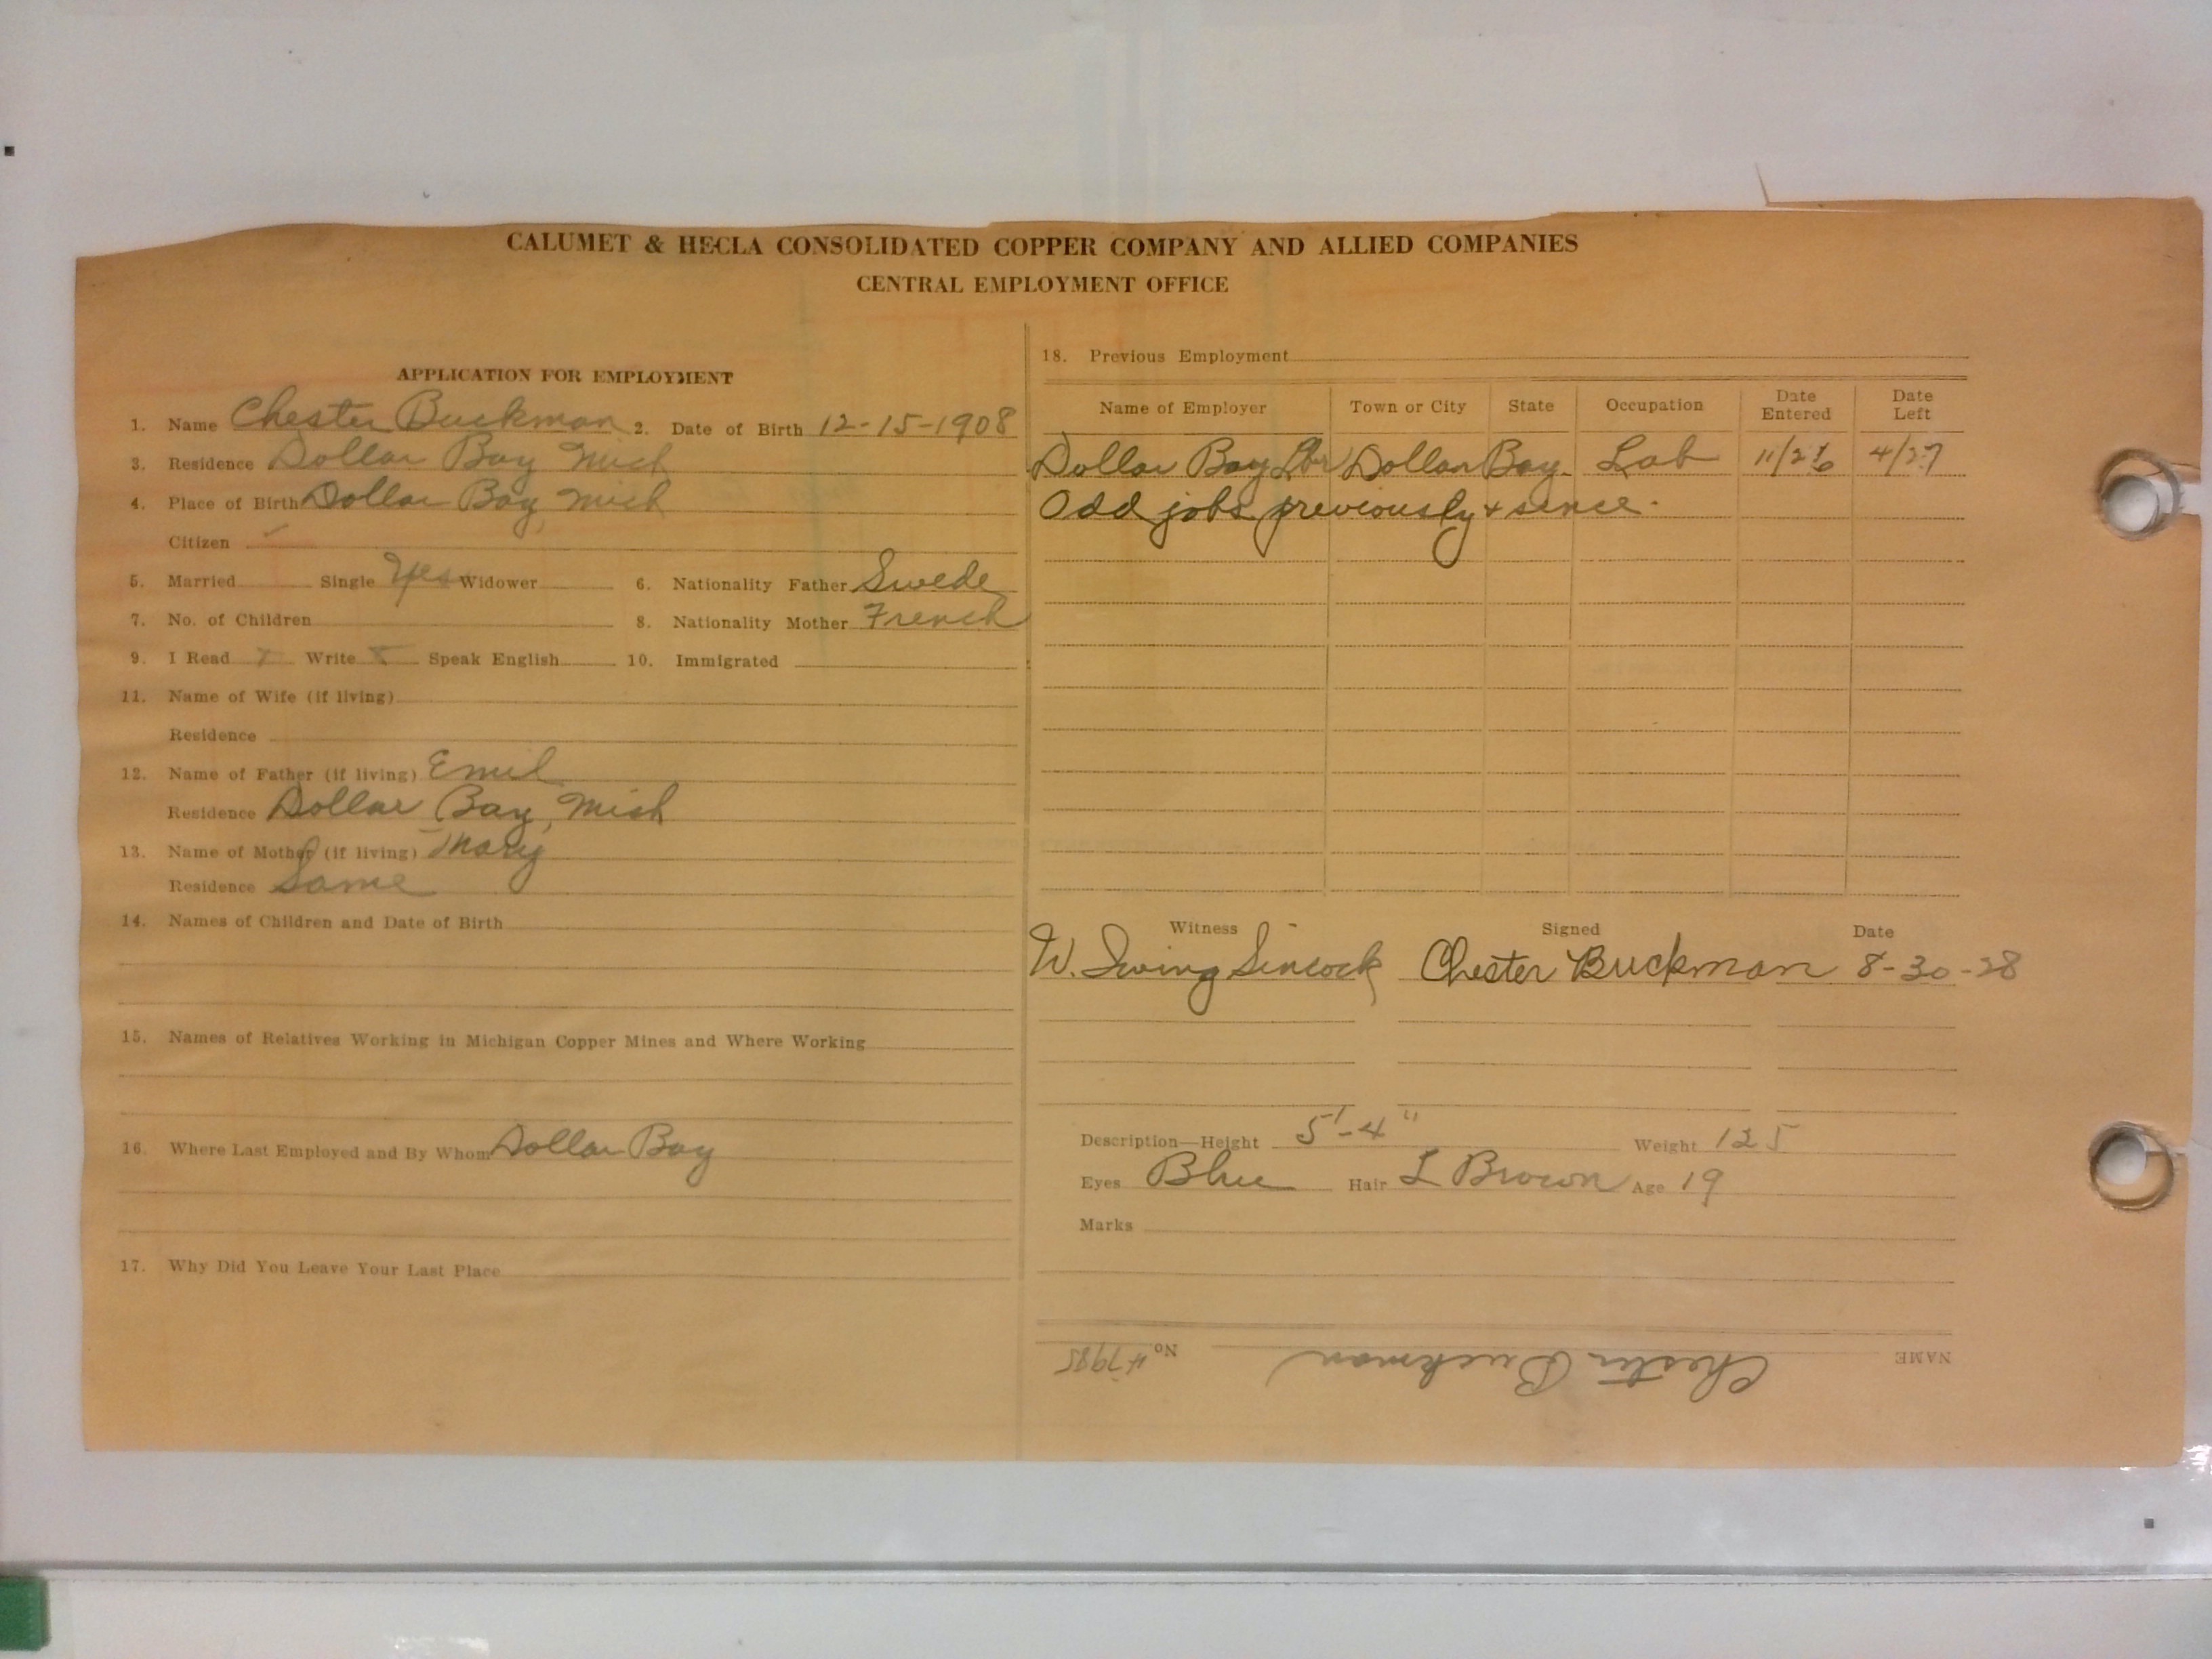 CALUMET & HECLA CONSOLIDATED COPPER COMPANY AND ALLIED COMPANIES
CENTRAL EMPLOYMENT OFFICE
APPLICATION FOR EMPLOYMENT
1. Name Chester Buckman 2. Date of Birth 12-15-1908
3. Residence Dollar Bay Mich
4. Place of Birth Dollar Bay, Mich
Citizen ✓
5. Married Single Yes Widower 6. Nationality Father Swede
7. No. of Children 8. Nationality Mother French
9. I Read x Write x Speak English 10. Immigrated
11. Name of Wife (if living)
Residence
12. Name of Father (if living) Emil
Residence Dollar Bay, Mich
13. Name of Mother (if living) Mary
Residence Same
14. Names of Children and Date of Birth
15. Names of Relatives Working in Michigan Copper Mines and Where Working
16. Where Last Employed and By Whom Dollar Bay
17. Why Did You Leave Your Last Place
18. Previous Employment
Name of Employer Town or City State Occupation Date Entered Date Left
Dollar Bay Lbr Dollar Bay Lab 11/26 4/27
Odd jobs previously & since.
Witness Signed Date
W. Irving Sincock Chester Buckman 8-30-28
Description—Height 5'-4" Weight 125
Eyes Blue Hair L Brown Age 19
Marks
NAME Chester Buckman No. #7985